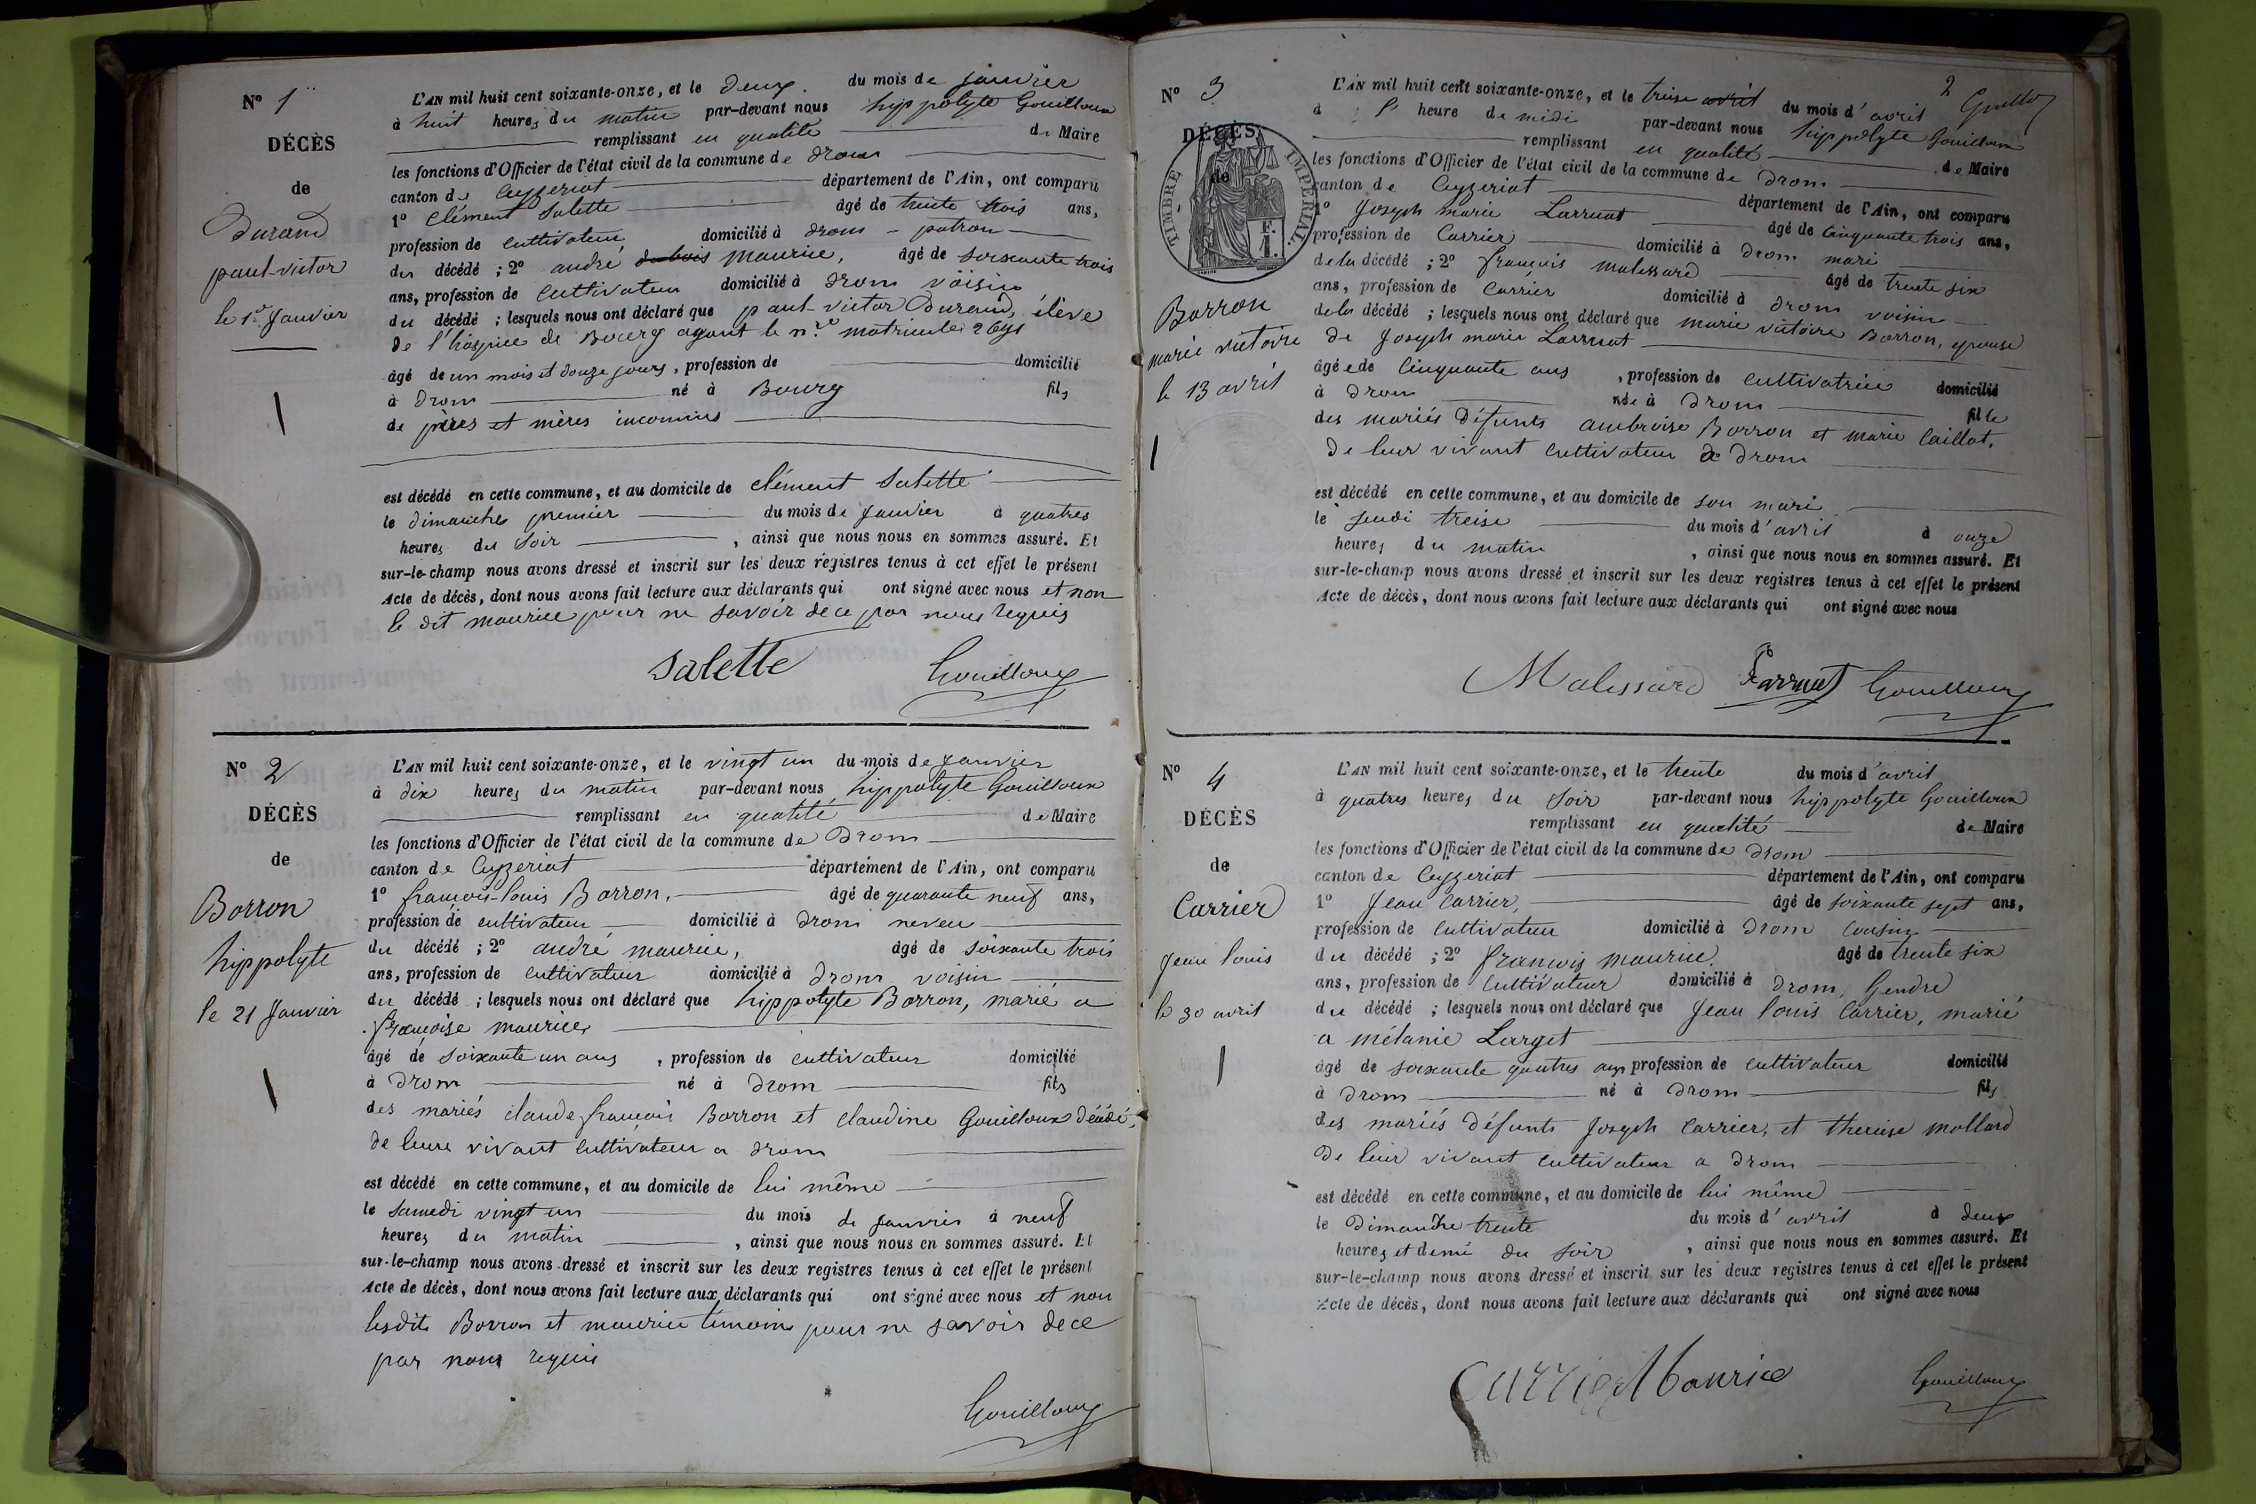 N° 1
DÉCÈS
de
Durand
paul-victor
le 1er Janvier
L'AN mil huit cent soixante-onze, et le deux du mois de janvier
à huit heures du matin par-devant nous hippolyte Gouilloux
remplissant en qualité de Maire
les fonctions d'Officier de l'état civil de la commune de drom
canton de Ceyzeriat département de l'Ain, ont comparu
1° Clément Salette âgé de trente trois ans,
profession de cultivateur domicilié à drom - patron
du décédé ; 2° andré dubois maurice, âgé de soixante trois
ans, profession de cultivateur domicilié à drom voisin
du décédé ; lesquels nous ont déclaré que paul-victor Durand, élève
de l'hospice de Bourg ayant le n.ro matricule
âgé de un mois et douze jours, profession de domicilié
à drom né à Bourg fils
de pères et mères inconnus
est décédé en cette commune, et au domicile de clément Salette
le dimanche premier du mois de Janvier à quatres
heures du soir , ainsi que nous nous en sommes assuré. Et
sur-le-champ nous avons dressé et inscrit sur les deux registres tenus à cet effet le présent
Acte de décès, dont nous avons fait lecture aux déclarants qui ont signé avec nous et non
le dit maurice pour ne savoir de ce par nous requis
Salette Gouilloux
N° 2
DÉCÈS
de
Borron
hippolyte
le 21 Janvier
L'AN mil huit cent soixante-onze, et le vingt un du mois de janvier
à dix heures du matin par-devant nous hippolyte Gouilloux
remplissant en qualité de Maire
les fonctions d'Officier de l'état civil de la commune de Drom
canton de Ceyzeriat département de l'Ain, ont comparu
1° françois-louis Borron, âgé de quarante neuf ans,
profession de cultivateur domicilié à drom neveu
du décédé ; 2° andré maurice, âgé de soixante trois
ans, profession de cultivateur domicilié à drom voisin
du décédé ; lesquels nous ont déclaré que hippolyte Borron, marié a
françoise maurice,
âgé de soixante un ans , profession de cultivateur domicilié
à drom né à drom fils
des mariés claude françois Borron et claudine Gouilloux décédé,
de leure vivant cultivateur a drom
est décédé en cette commune, et au domicile de lui même
le samedi vingt un du mois de janvier à neuf
heures du matin , ainsi que nous nous en sommes assuré. Et
sur-le-champ nous avons dressé et inscrit sur les deux registres tenus à cet effet le présent
Acte de décès, dont nous avons fait lecture aux déclarants qui ont signé avec nous et non
lesdits Borron et maurice témoins pour ne savoir de ce
par nous requis
Gouilloux
2
N° 3
DÉCÈS
de
TIMBRE IMPÉRIAL
Borron
marie victoire
le 13 avril
L'AN mil huit cent soixante-onze, et le treise avril du mois d'avril
à 1 heure de midi par-devant nous hippolyte Gouilloux
remplissant en qualité de Maire
les fonctions d'Officier de l'état civil de la commune de Drom
canton de Ceyzeriat département de l'Ain, ont comparu
1° Joseph marie Larruat âgé de cinquante trois ans,
profession de Carrier domicilié à drom mari
de la décédé ; 2° françois malessard âgé de trente six
ans, profession de Carrier domicilié à drom voisin
de la décédé ; lesquels nous ont déclaré que marie victoire Borron, epouse
de Joseph marie Larruat
âgée de Cinquante ans , profession de cultivatrice domicilié
à drom née à drom fille
des mariés défunts ambroise Borron et marie Caillat,
de leur vivant cultivateur a drom
est décédé en cette commune, et au domicile de son mari
le jeudi treise du mois d'avril à onze
heures du matin , ainsi que nous nous en sommes assuré. Et
sur-le-champ nous avons dressé et inscrit sur les deux registres tenus à cet effet le présent
Acte de décès, dont nous avons fait lecture aux déclarants qui ont signé avec nous
Malessard Larruat Gouilloux
N° 4
DÉCÈS
de
Carrier
Jean louis
le 30 avril
L'AN mil huit cent soixante-onze, et le trente du mois d'avril
à quatres heures du soir par-devant nous hippolyte Gouilloux
remplissant en qualité de Maire
les fonctions d'Officier de l'état civil de la commune de drom
canton de Ceyzeriat département de l'Ain, ont comparu
1° Jean Carrier, âgé de soixante sept ans,
profession de cultivateur domicilié à drom cousin
du décédé ; 2° françois maurice. âgé de trente six
ans, profession de Cultivateur domicilié à drom, Gendre
du décédé ; lesquels nous ont déclaré que Jean louis Carrier, marié
a mélanie Larget
âgé de soixante quatres ans profession de cultivateur domicilié
à drom né à drom fils
des mariés défunts Joseph Carrier, et thereise mollard
de leur vivant cultivateur a drom
est décédé en cette commune, et au domicile de lui même
le Dimanche trente du mois d'avril à deux
heures et demi du soir , ainsi que nous nous en sommes assuré. Et
sur-le-champ nous avons dressé et inscrit sur les deux registres tenus à cet effet le présent
Acte de décès, dont nous avons fait lecture aux déclarants qui ont signé avec nous
Carrier Mourice Gouilloux